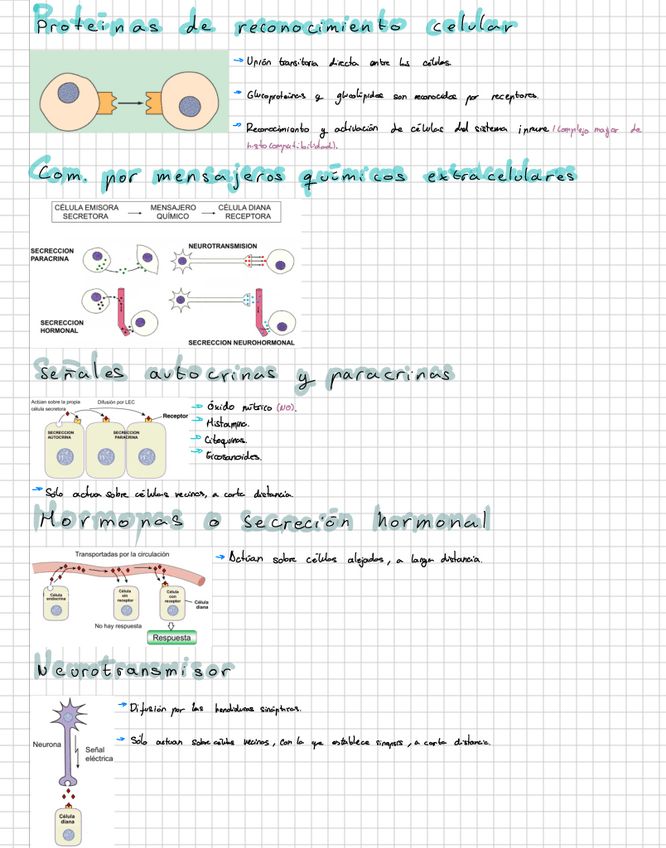 Proteinas de reconocimiento celular
→ Unión transitoria directa entre las células.
→ Glucoproteínas y glucolípidos son reconocidos por receptores.
→ Reconocimiento y activación de células del sistema inmune (complejo mayor de
histocompatibilidad).
Com. por mensajeros químicos extracelulares
CÉLULA EMISORA SECRETORA → MENSAJERO QUÍMICO → CÉLULA DIANA RECEPTORA
SECRECCION PARACRINA
NEUROTRANSMISION
SECRECCION HORMONAL
SECRECCION NEUROHORMONAL
Señales autocrinas y paracrinas
Actúan sobre la propia célula secretora
Difusión por LEC
Receptor
SECRECCION AUTOCRINA
SECRECCION PARACRINA
→ Óxido nítrico (NO).
→ Histamina.
→ Citoquinas.
→ Eicosanoides.
→ Sólo actúa sobre células vecinas, a corta distancia
Hormonas o secreción hormonal
Transportadas por la circulación
Célula endocrina
Célula sin receptor
Célula con receptor
Célula diana
No hay respuesta
Respuesta
→ Actúan sobre células alejadas, a larga distancia.
Neurotransmisor
Neurona
Señal eléctrica
Célula diana
→ Difusión por las hendiduras sinápticas.
→ Sólo actúan sobre células vecinas, con la que establece sinapsis, a corta distancia.